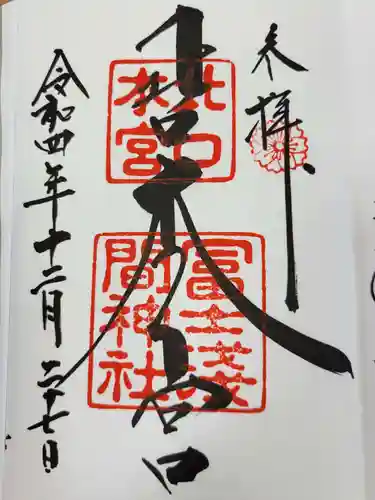 奉拝
吉田口
北口
本宮
冨士浅
間神社
令和四年十二月二十七日